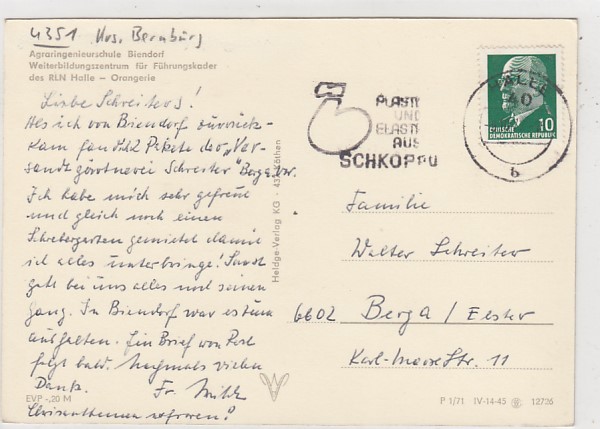 4351 Krs. Bernburg
Agraringenieurschule Biendorf
Weiterbildungszentrum für Führungskader
des RLN Halle – Orangerie
Liebe Schreiters!
Als ich von Biendorf zurück-
kam fand ich 2 Pakete der „Ver-
sandgärtnerei Schreiter" Berga vor.
Ich habe mich sehr gefreut
und gleich noch einen
Schrebergarten gemietet damit
ich alles unterbringe! Sonst
geht bei uns alles noch seinen
Gang. In Biendorf war es zum
aushalten. Ein Brief von
folgt bald. Nochmals vielen
Dank. Fr.
EVP -,20 M
Chrisanthemen erfroren!
Heldge-Verlag KG · 437 Köthen
PLASTE
UND
ELASTE
AUS
SCHKOPAU
HALLE
b
10
DEUTSCHE
DEMOKRATISCHE REPUBLIK
Familie
Walter Schreiter
6602 Berga / Elster
Karl-Marx-Str. 11
P 1/71 IV-14-45 12726